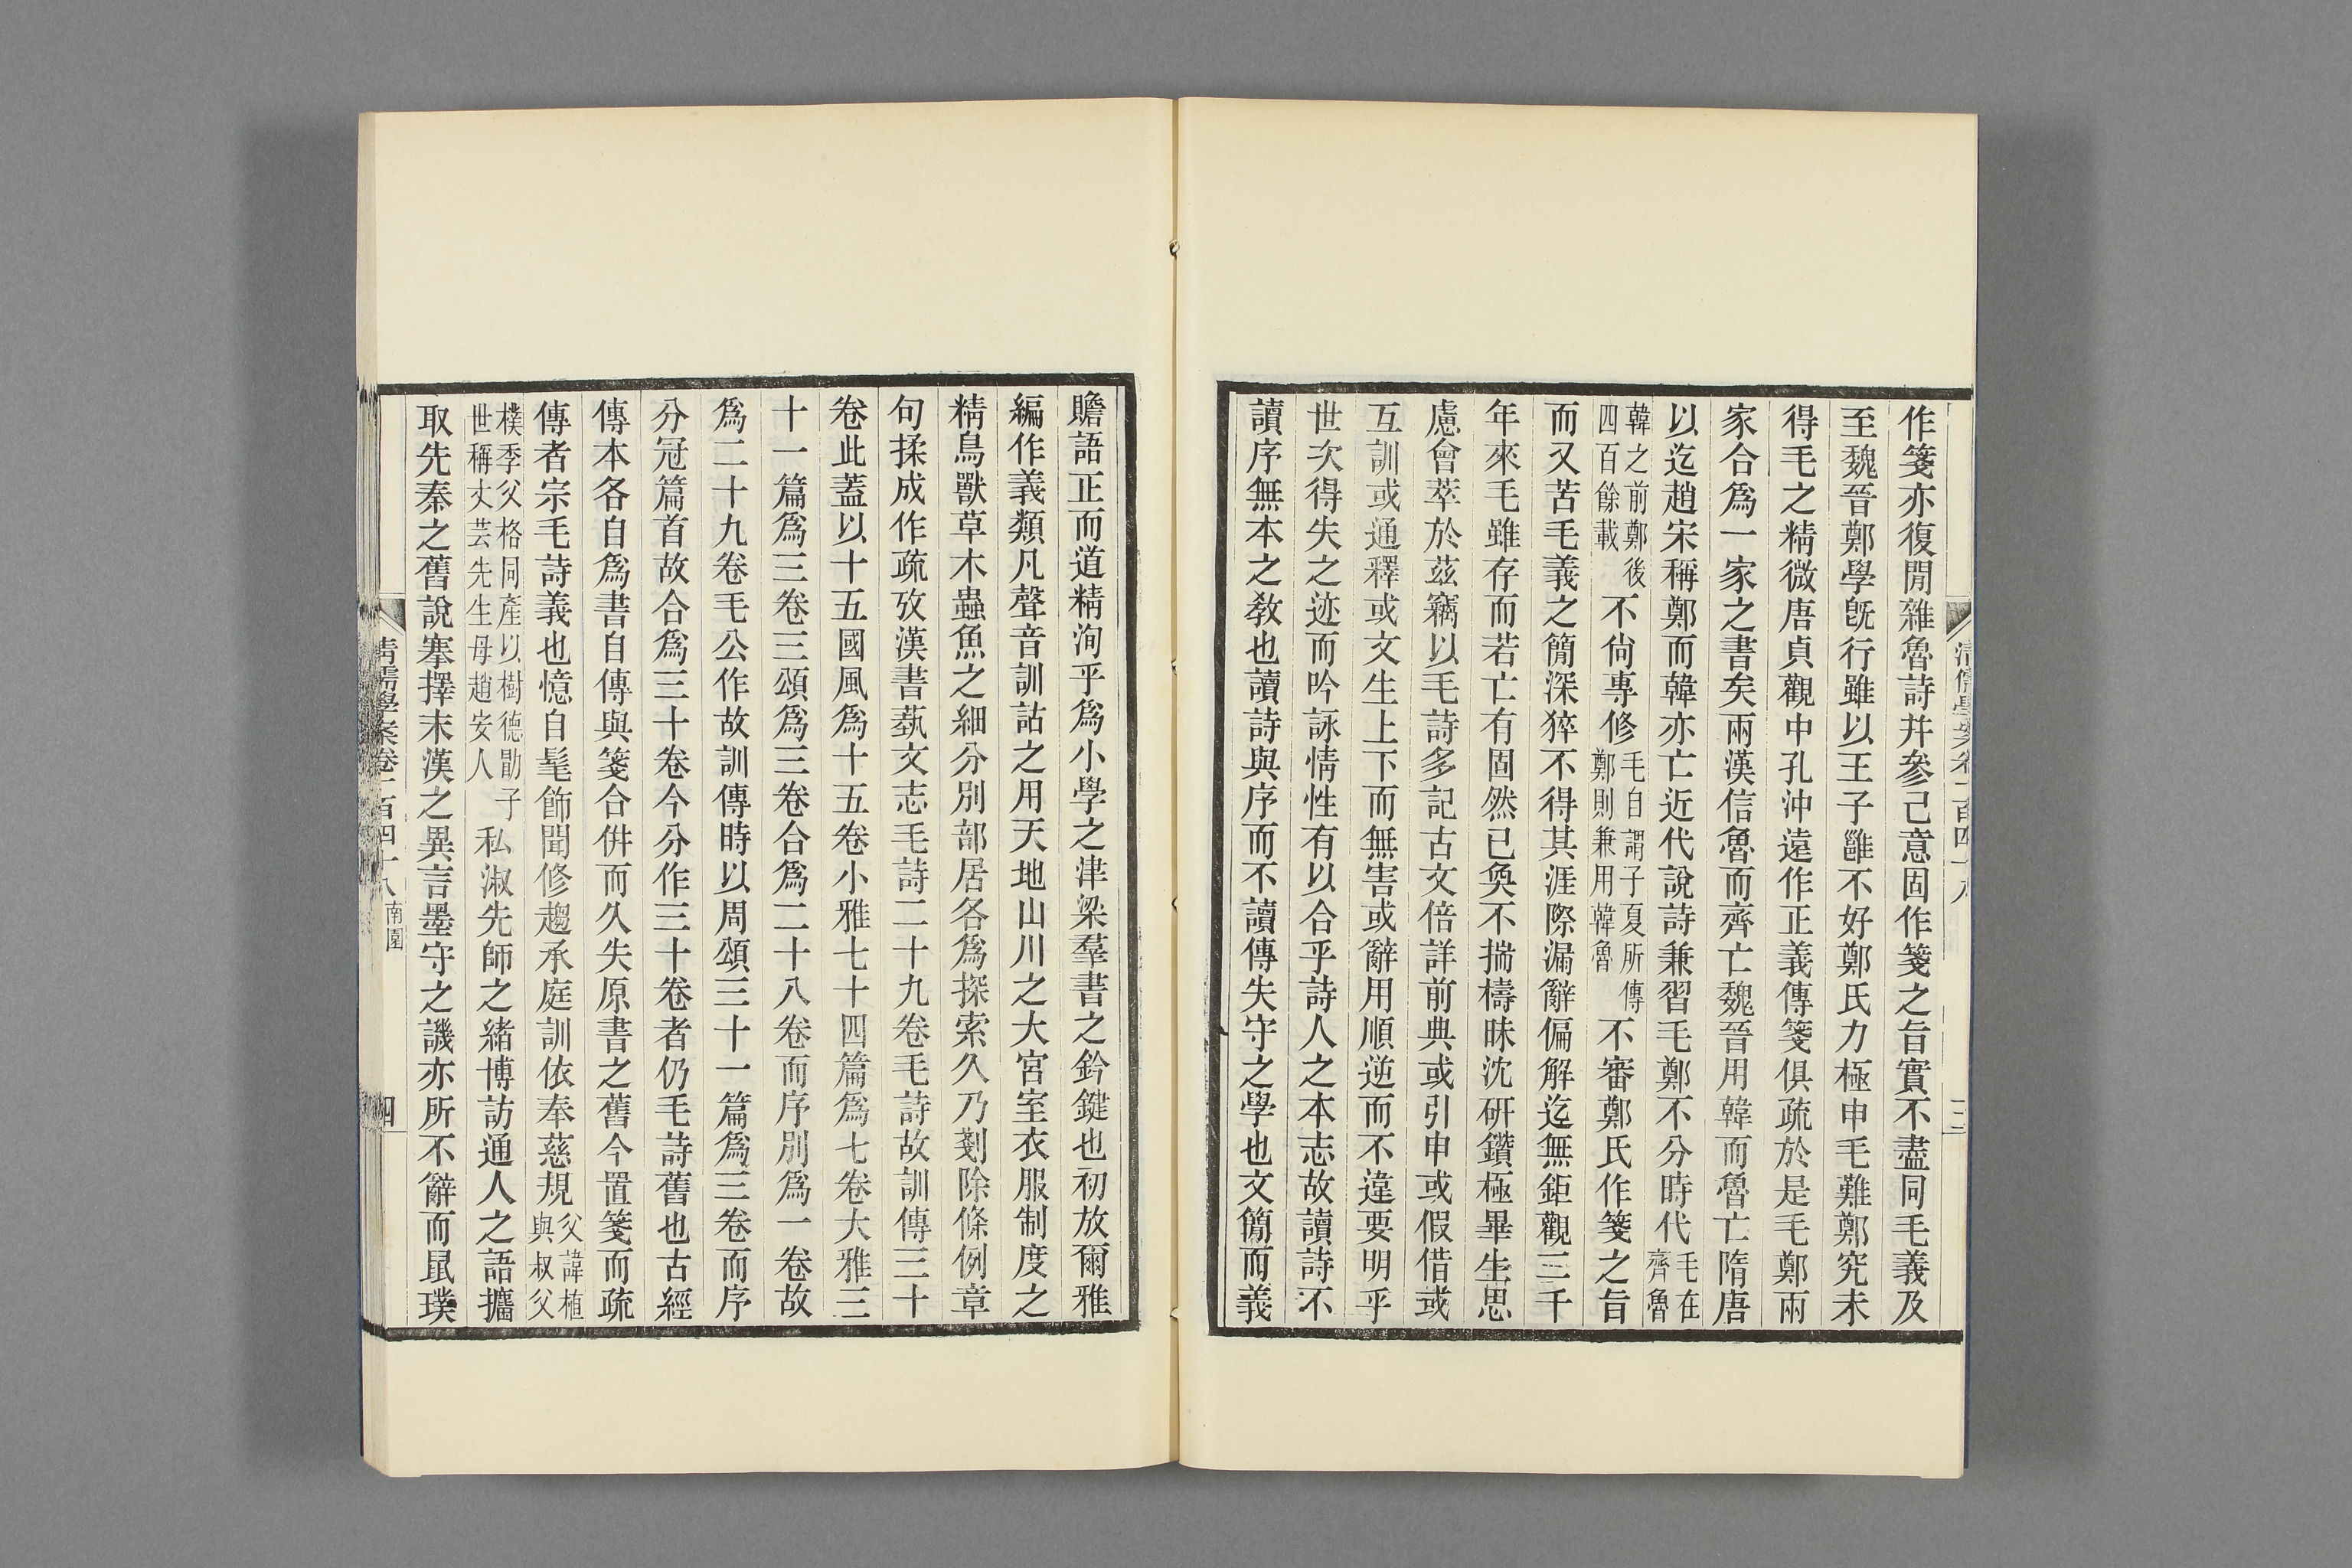 作箋亦復閒雜魯詩幷參己意固作箋之旨實不盡同毛義及
至魏晉鄭學旣行雖以王子雝不好鄭氏力極申毛難鄭究未
得毛之精微唐貞觀中孔沖遠作正義傳箋俱疏於是毛鄭兩
家合爲一家之書矣兩漢信魯而齊亡魏晉用韓而魯亡隋唐
以迄趙宋稱鄭而韓亦亡近代說詩兼習毛鄭不分時代毛在齊魯
韓之前鄭後四百餘載不尙專修毛自謂子夏所傳鄭則兼用韓魯不審鄭氏作箋之旨
而又苦毛義之簡深猝不得其涯際漏辭偏解迄無鉅觀三千
年來毛雖存而若亡有固然已奐不揣檮昧沈硏鑽極畢生思
慮會萃於茲竊以毛詩多記古文倍詳前典或引申或假借或
互訓或通釋或文生上下而無害或辭用順逆而不違要明乎
世次得失之迹而吟詠情性有以合乎詩人之本志故讀詩不
讀序無本之敎也讀詩與序而不讀傳失守之學也文簡而義
贍語正而道精洵乎爲小學之津梁羣書之鈐鍵也初放爾雅
編作義類凡聲音訓詁之用天地山川之大宮室衣服制度之
精鳥獸草木蟲魚之細分別部居各爲探索久乃剗除條例章
句揉成作疏攷漢書蓺文志毛詩二十九卷毛詩故訓傳三十
卷此蓋以十五國風爲十五卷小雅七十四篇爲七卷大雅三
十一篇爲三卷三頌爲三卷合爲二十八卷而序別爲一卷故
爲二十九卷毛公作故訓傳時以周頌三十一篇爲三卷而序
分冠篇首故合爲三十卷今分作三十卷者仍毛詩舊也古經
傳本各自爲書自傳與箋合倂而久失原書之舊今置箋而疏
傳者宗毛詩義也憶自髦飾聞修趨承庭訓依奉慈規父諱植與叔父
樸季父格同產以樹德勖子世稱丈芸先生母趙安人私淑先師之緒博訪通人之語擴
取先秦之舊說搴擇末漢之異言墨守之譏亦所不辭而鼠璞
清儒學案卷一百四十八 南園
四